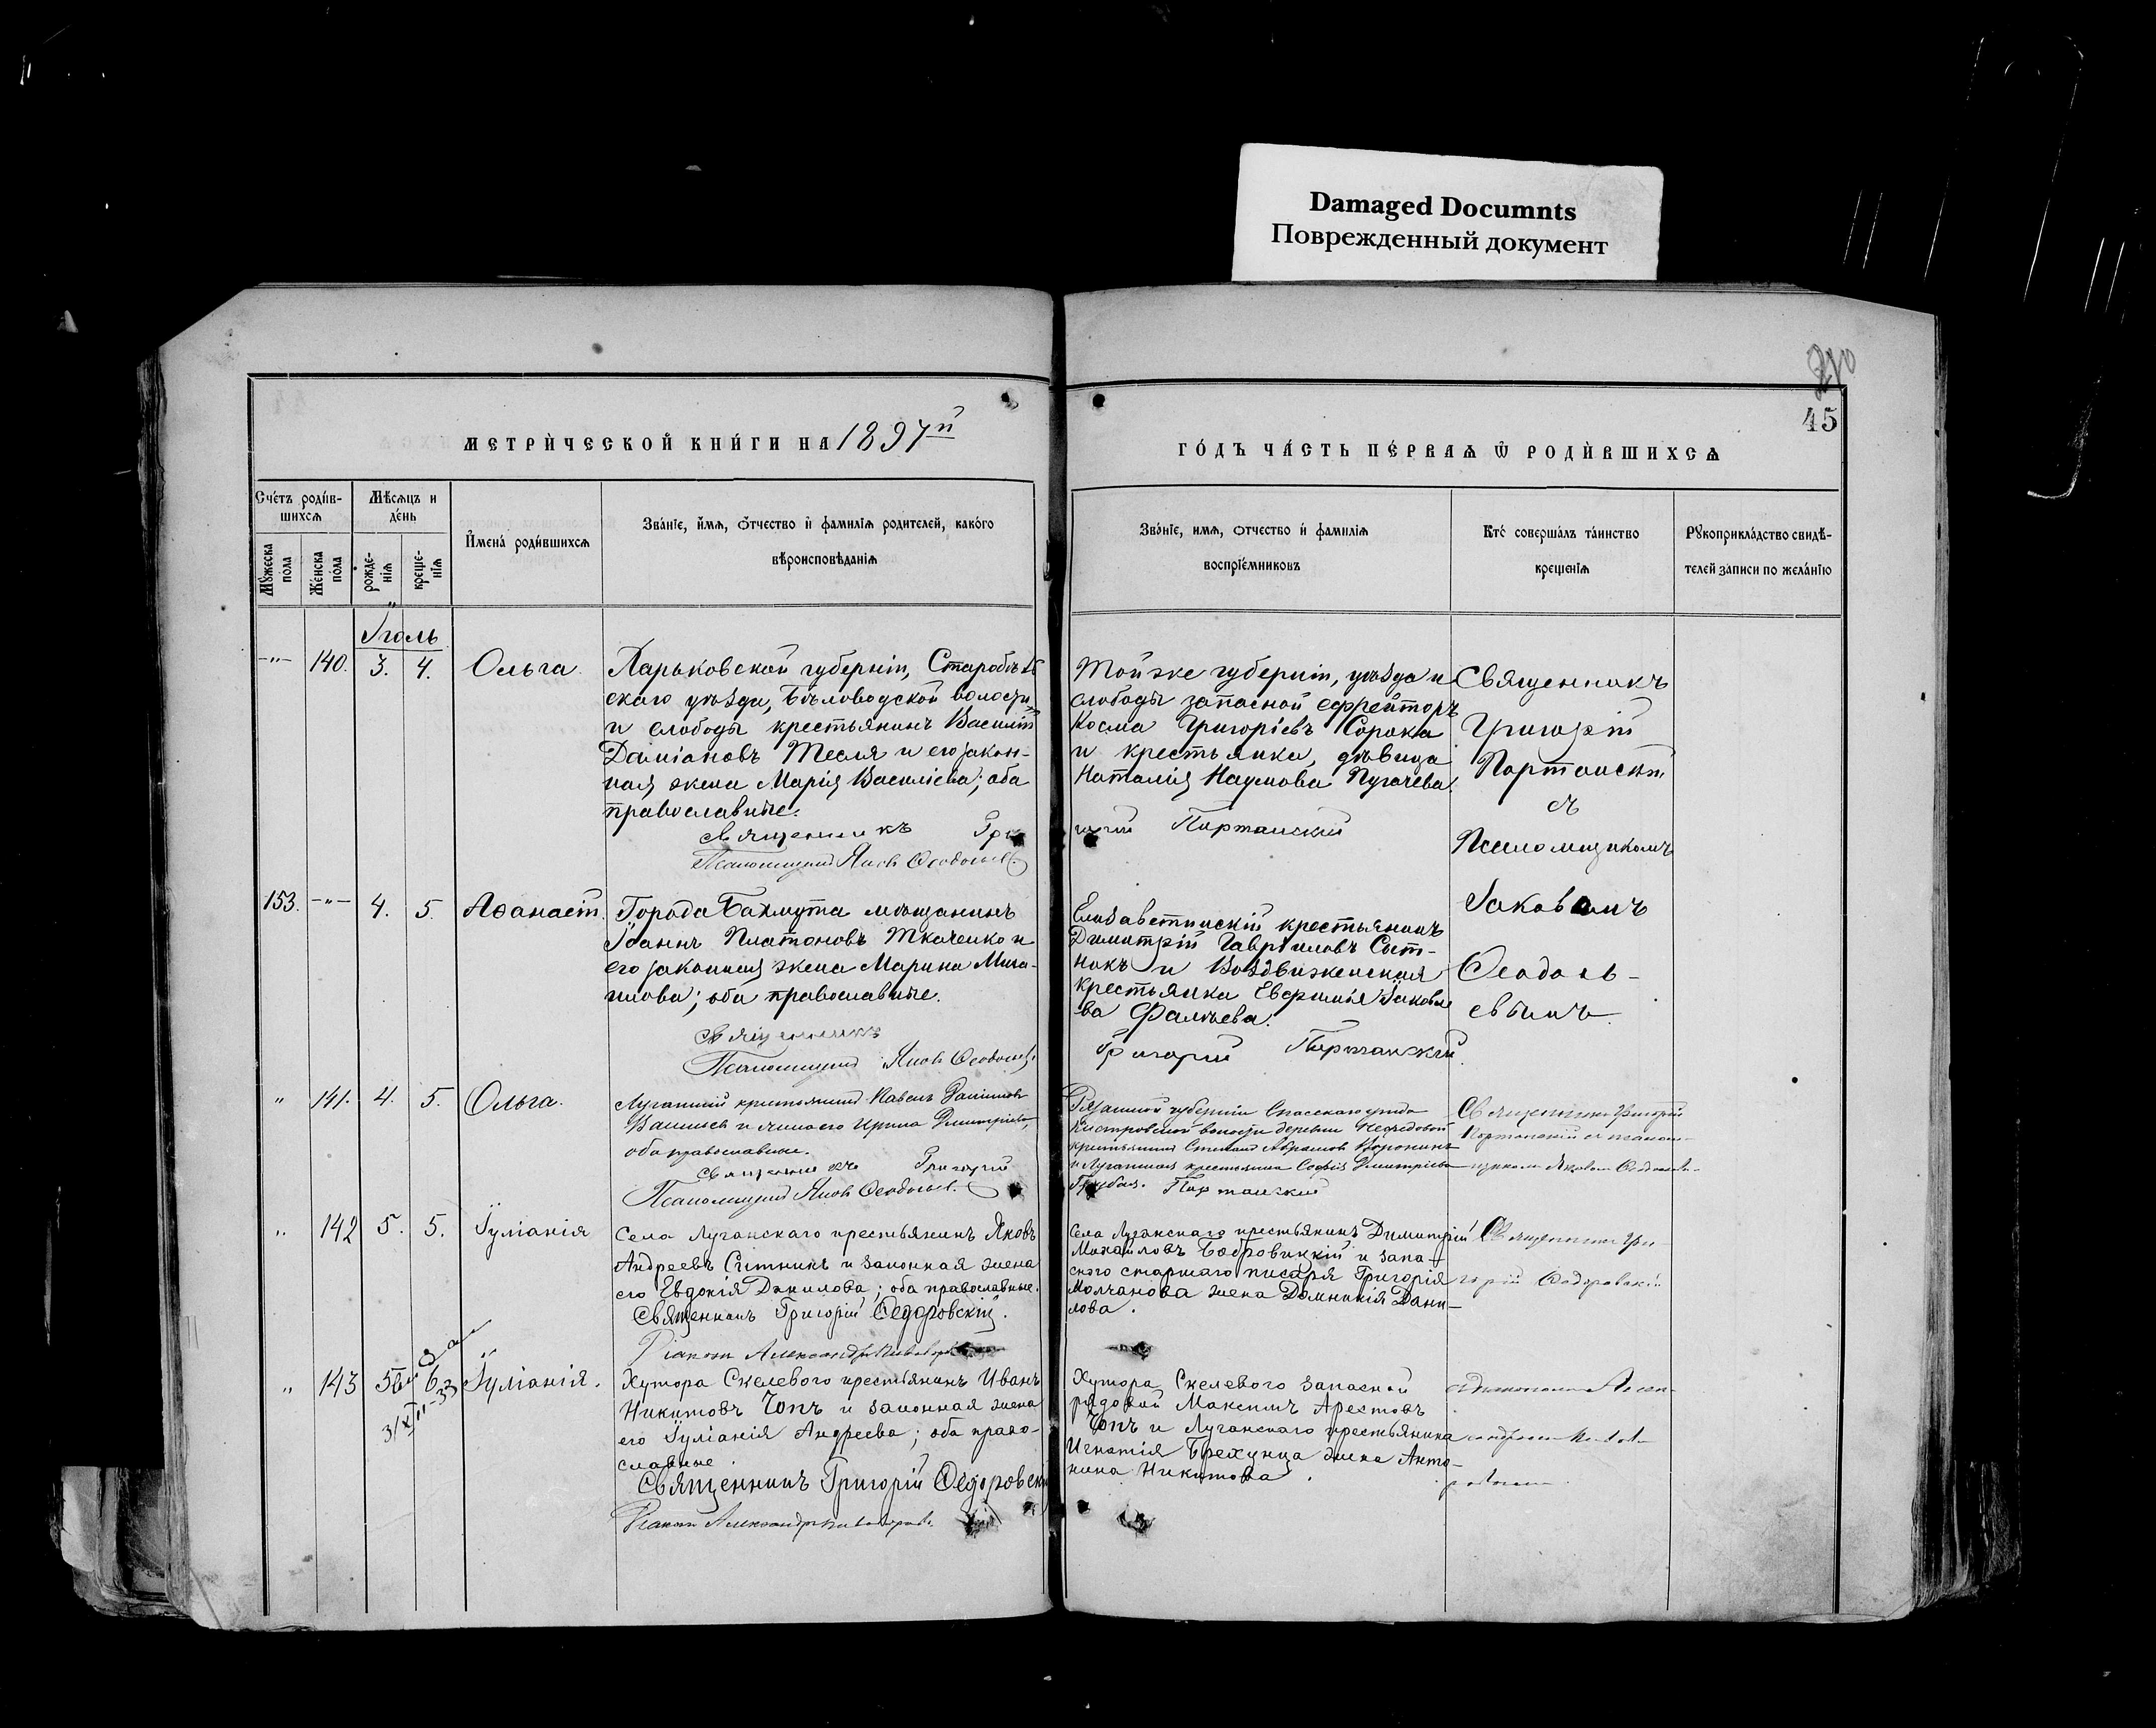 Damaged Documnts
Поврежденный документ
45
МЕТРИ́ЧЕСКОЙ КНИ́ГИ НА 1897й
ГО́ДЪ ЧА́СТЬ ПЕ́РВАѦ Ѿ РОДИ́ВШИХСѦ
Сче́тъ роди́в-
шихсѧ
Мѣсѧцъ и
де́нь
Мꙋ́жеска
по́ла
Же́нска
по́ла
рожде́-
нїѧ
креще́-
нїѧ
И҆мена̀ роди́вшихсѧ
Зва́нїе, и҆́мѧ, ѻ҆́тчество и҆ фами́лїѧ роди́телей, како́го
вѣроисповѣ́данїѧ
Зва́нїе, и҆мѧ, ѻтчество и҆ фами́лїѧ
воспрїе́мниковъ
Кто̀ соверша́лъ та́инство
креще́нїѧ
Рꙋкоприкла́дство свидѣ́-
телей за́писи по жела́нїю
Іюль
-"- 140. 3. 4. Ольга.
Харьковской губерніи, Старобѣль
скаго уѣзда, Бѣловодской волости,
и слободы крестьянинъ Василій
Даміановъ Тесля и его закон-
ная жена Марія Василіева; оба
православные.
Священникъ Гри
Псаломщикъ Яковъ Ѳеодосьев.
Той же губерніи, уѣзда и
слободы запасной ефрейторъ
Косма Григоріевъ Сорока
и крестьянка, дѣвица
Наталія Наумова Пугачева.
горій Портанскій
Священникъ
Григорій
Портанскій
съ
Псаломщикомъ
Іаковомъ
Ѳеодось-
евымъ.
153. -"- 4. 5. Аѳанасій.
Города Бахмута мѣщанинъ
Іоаннъ Платоновъ Ткаченко и
его законная жена Марина Миха-
илова; оба православные.
Священникъ
Псаломщикъ Яковъ Ѳеодосьев.
Елисаветинскій крестьянинъ
Димитрій Гавріиловъ Сыт-
никъ и Воздвиженская
крестьянка Евфимія Іаковле
ва Фалѣева.
Григорій Портанскій
" 141. 4. 5. Ольга.
Луганскій крестьянинъ Павелъ
и жена его Ирина Димитріева,
оба православные.
Священникъ Григорій
Псаломщикъ Яковъ Ѳеодосьев.
Рязанской губерніи Спасскаго уѣзда
волости деревни
крестьянинъ Степанъ Абрамовъ Воронинъ
и Луганская крестьянка Софія Димитріева
Портанскій
Священникъ Григорій
Портанскій съ псалом-
щикомъ Яковомъ Ѳеодосьев-
" 142 5. 5. Іуліанія
Села Луганскаго крестьянинъ Яковъ
Андреевъ Сытникъ и законная жена
его Евдокія Данилова; оба православные.
Священникъ Григорій Ѳедоровскій.
Діаконъ Александръ
Села Луганскаго крестьянинъ Димитрій
Михайловъ Бобровицкій и запа-
сного старшаго писаря Григорія
Молчанова жена Домникія Дани-
лова.
Священникъ Гри-
горій Ѳедоровскій
" 143 5 6 Іуліанія.
31/XII-33
Хутора Скелевого крестьянинъ Иванъ
Никитовъ Чопъ и законная жена
его Іуліанія Андреева; оба право-
славные.
Священникъ Григорій Ѳедоровскій
Діаконъ Александръ
Хутора Скелевого запасной
рядовой Максимъ Арестовъ
Чопъ и Луганскаго крестьянина
Игнатія Брехунца жена Анто-
нина Никитова.
съ діакономъ Алек-